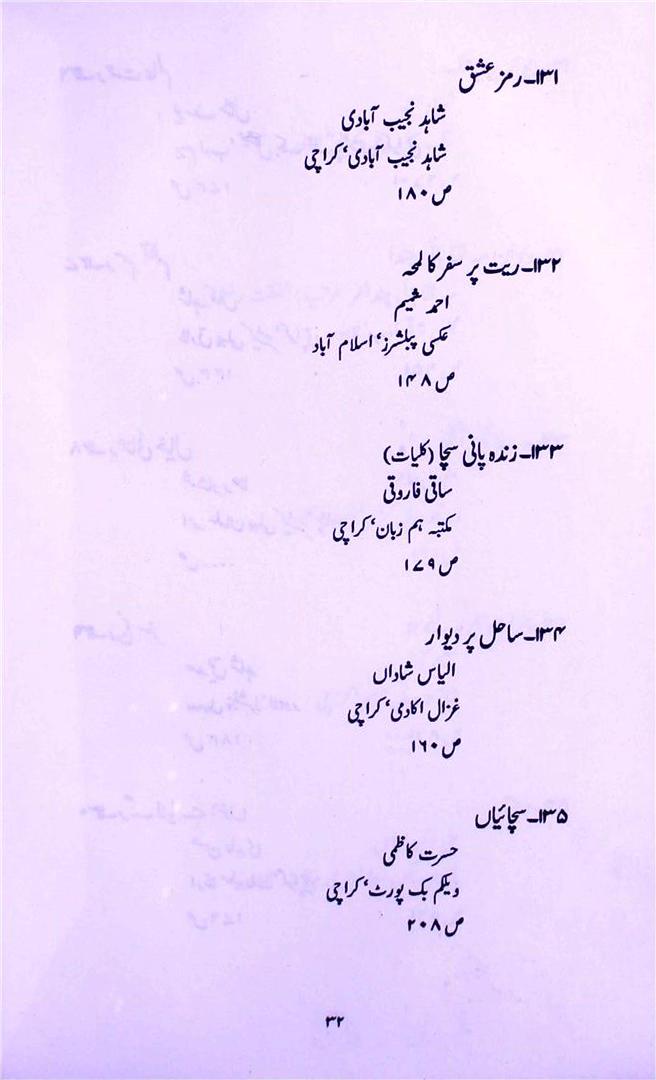 ۱۳۱۔رمز عشق
شاہد نجیب آبادی
شاہد نجیب آبادی، کراچی
ص ۱۸۰
۱۳۲۔ریت پر سفر کا لمحہ
احمد شمیم
عکسی پبلشرز، اسلام آباد
ص ۱۴۸
۱۳۳۔زندہ پانی سچا (کلیات)
ساقی فاروقی
مکتبہ ہم زبان، کراچی
ص ۱۷۹
۱۳۴۔ساحل پر دیوار
الیاس شاداں
غزال اکادمی، کراچی
ص ۱۶۰
۱۳۵۔سچائیاں
حسرت کاظمی
ویلکم بک پورٹ، کراچی
ص ۲۰۸
۳۲